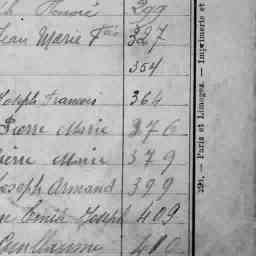 299
Jean Marie Fçois 327
354
Joseph Francois 364
Pierre Marie 376
Pierre Marie 379
Joseph Armand 399
Emile Joseph 409
Guillaume 410
291. — Paris et Limoges. — Imprimerie et